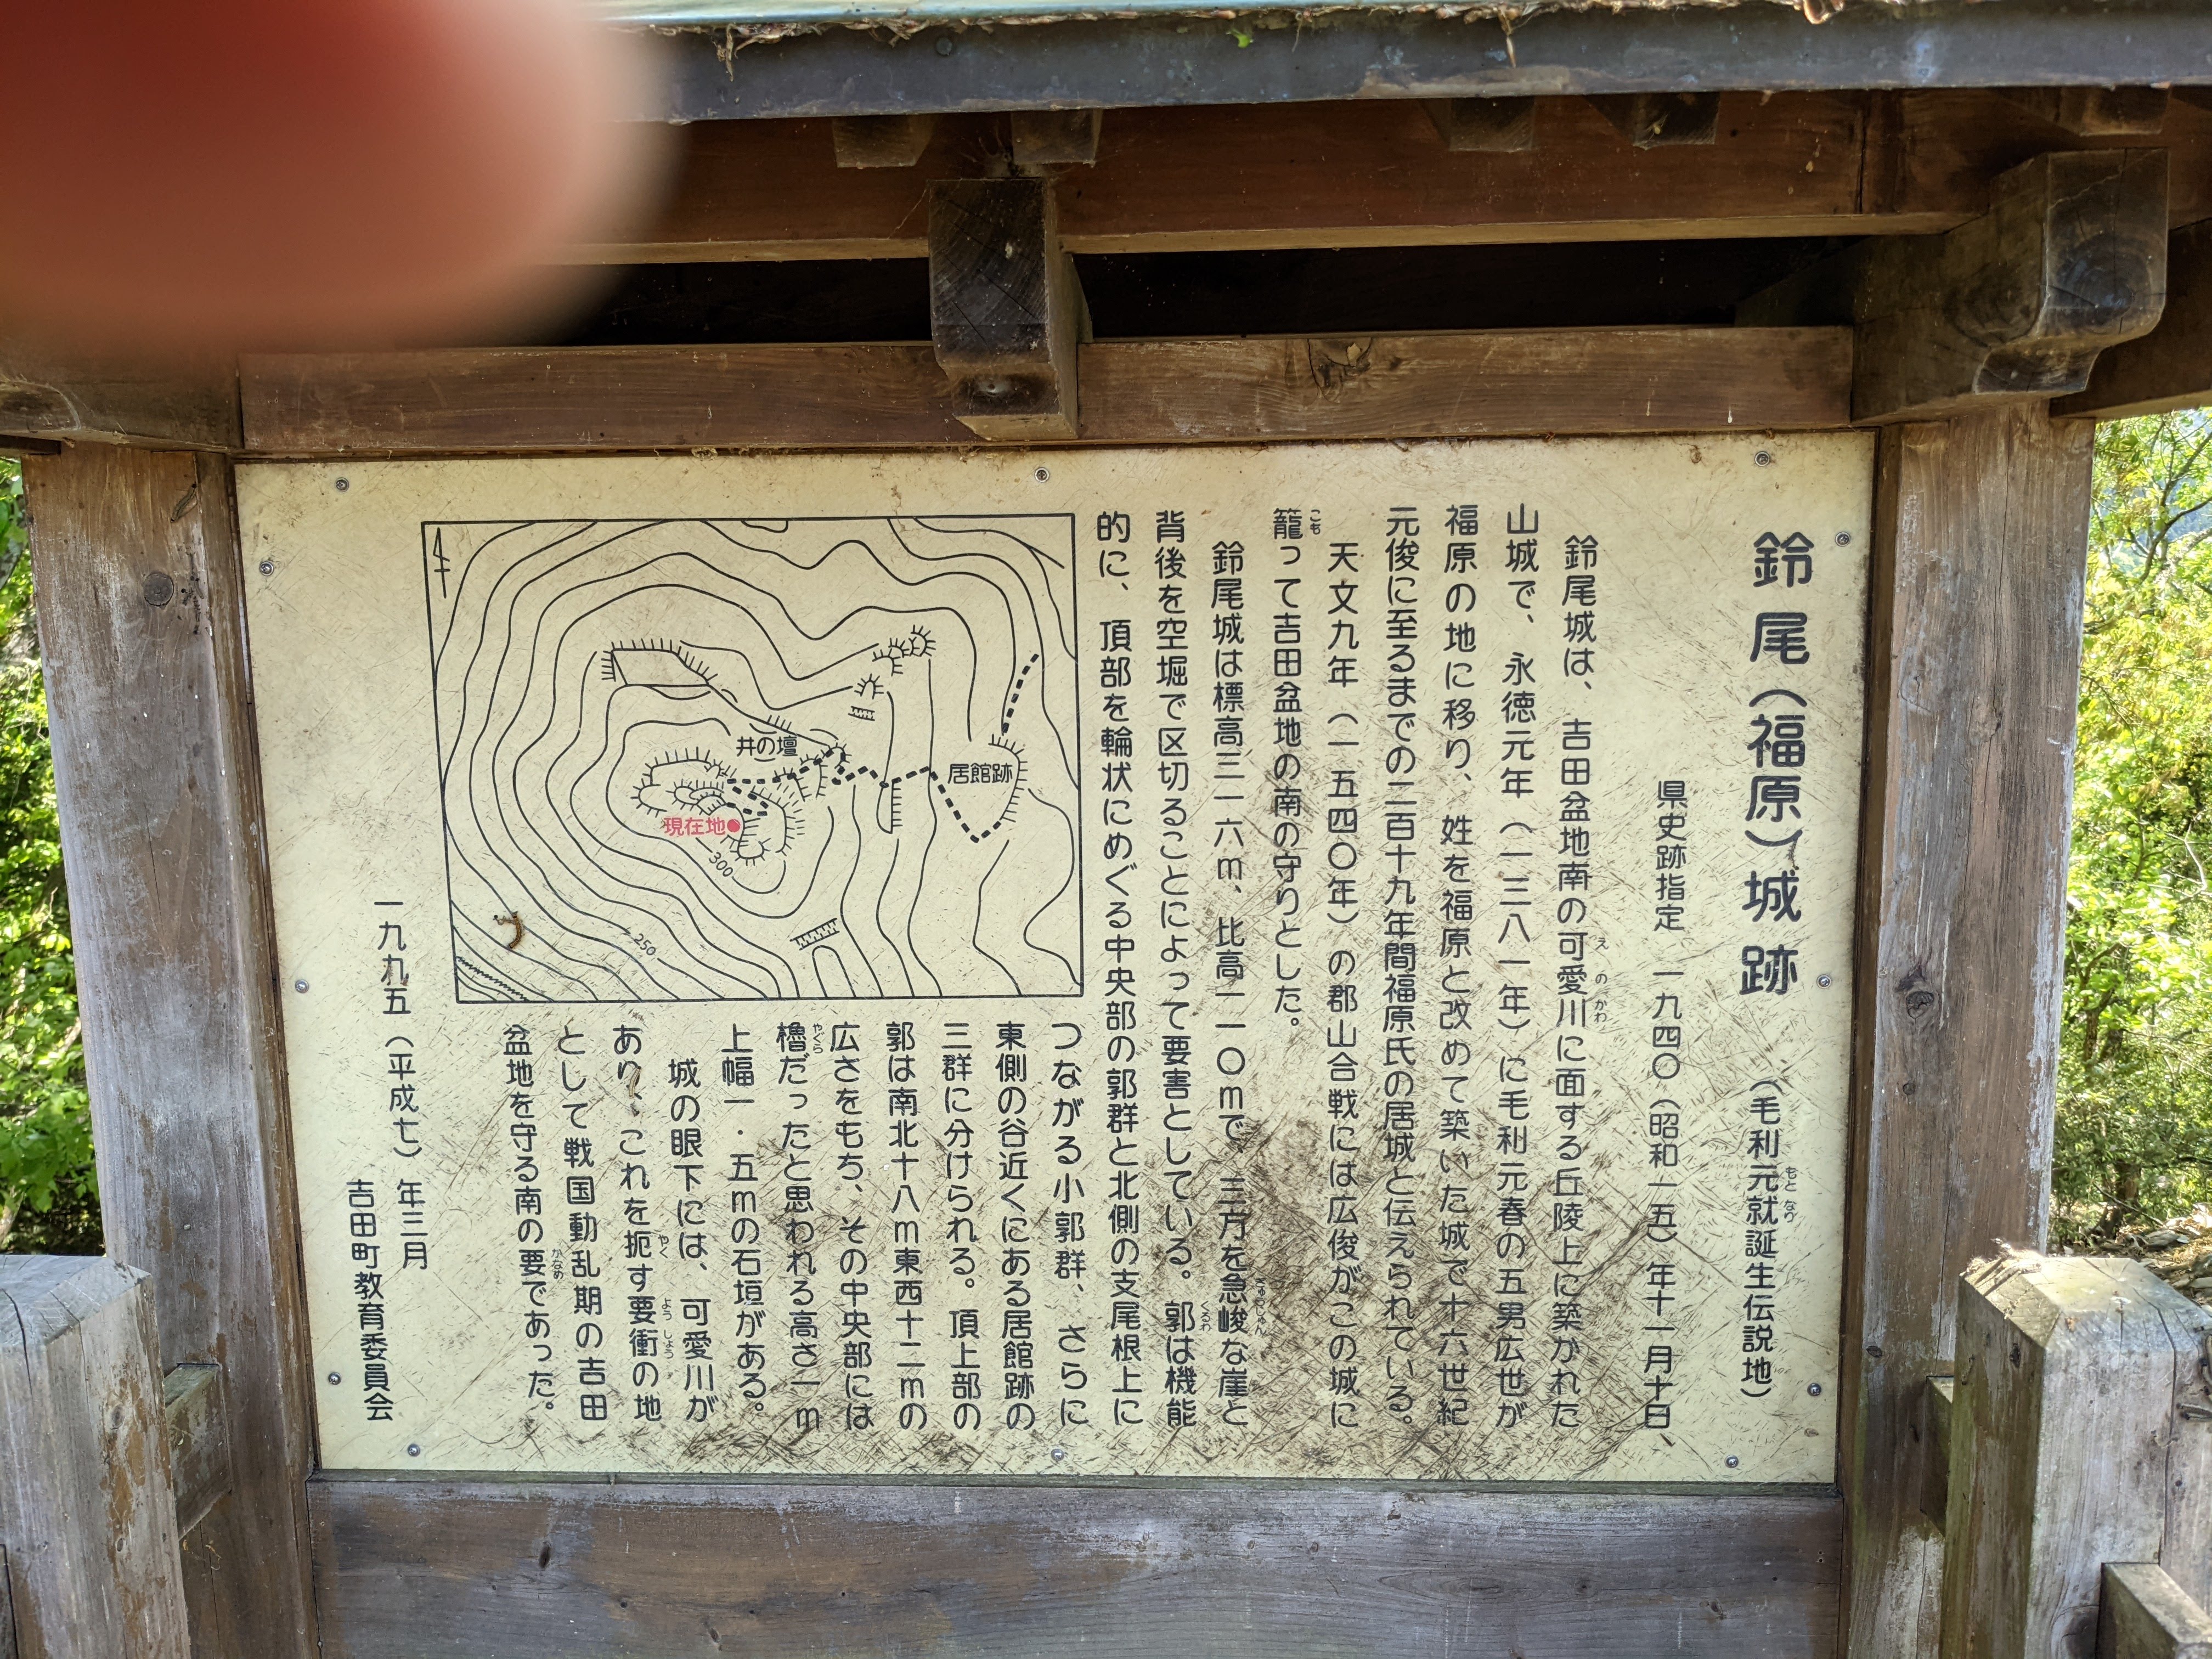 鈴尾(福原)城跡 (毛利元就誕生伝説地)
県史跡指定 一九四〇(昭和一五)年十一月十日、
鈴尾城は、吉田盆地南の可愛川に面する丘陵上に築かれた
山城で、永徳元年(一三八一年)に毛利元春の五男広世が
福原の地に移り、姓を福原と改めて築いた城で十六世紀
元俊に至るまでの二百十九年間福原氏の居城と伝えられている。
天文九年(一五四〇年)の郡山合戦には広俊がこの城に
籠って吉田盆地の南の守りとした。
鈴尾城は標高三一六m、比高一一〇mで、三方を急峻な崖と
背後を空堀で区切ることによって要害としている。郭は機能
的に、頂部を輪状にめぐる中央部の郭群と北側の支尾根上に
つながる小郭群、さらに
東側の谷近くにある居館跡の
三群に分けられる。頂上部の
郭は南北十八m東西十二mの
広さをもち、その中央部には
櫓だったと思われる高さ一m
上幅一・五mの石垣がある。
城の眼下には、可愛川が
あり、これを扼す要衝の地
として戦国動乱期の吉田
盆地を守る南の要であった。
一九九五(平成七)年三月
吉田町教育委員会
井の壇
居館跡
現在地
300
250